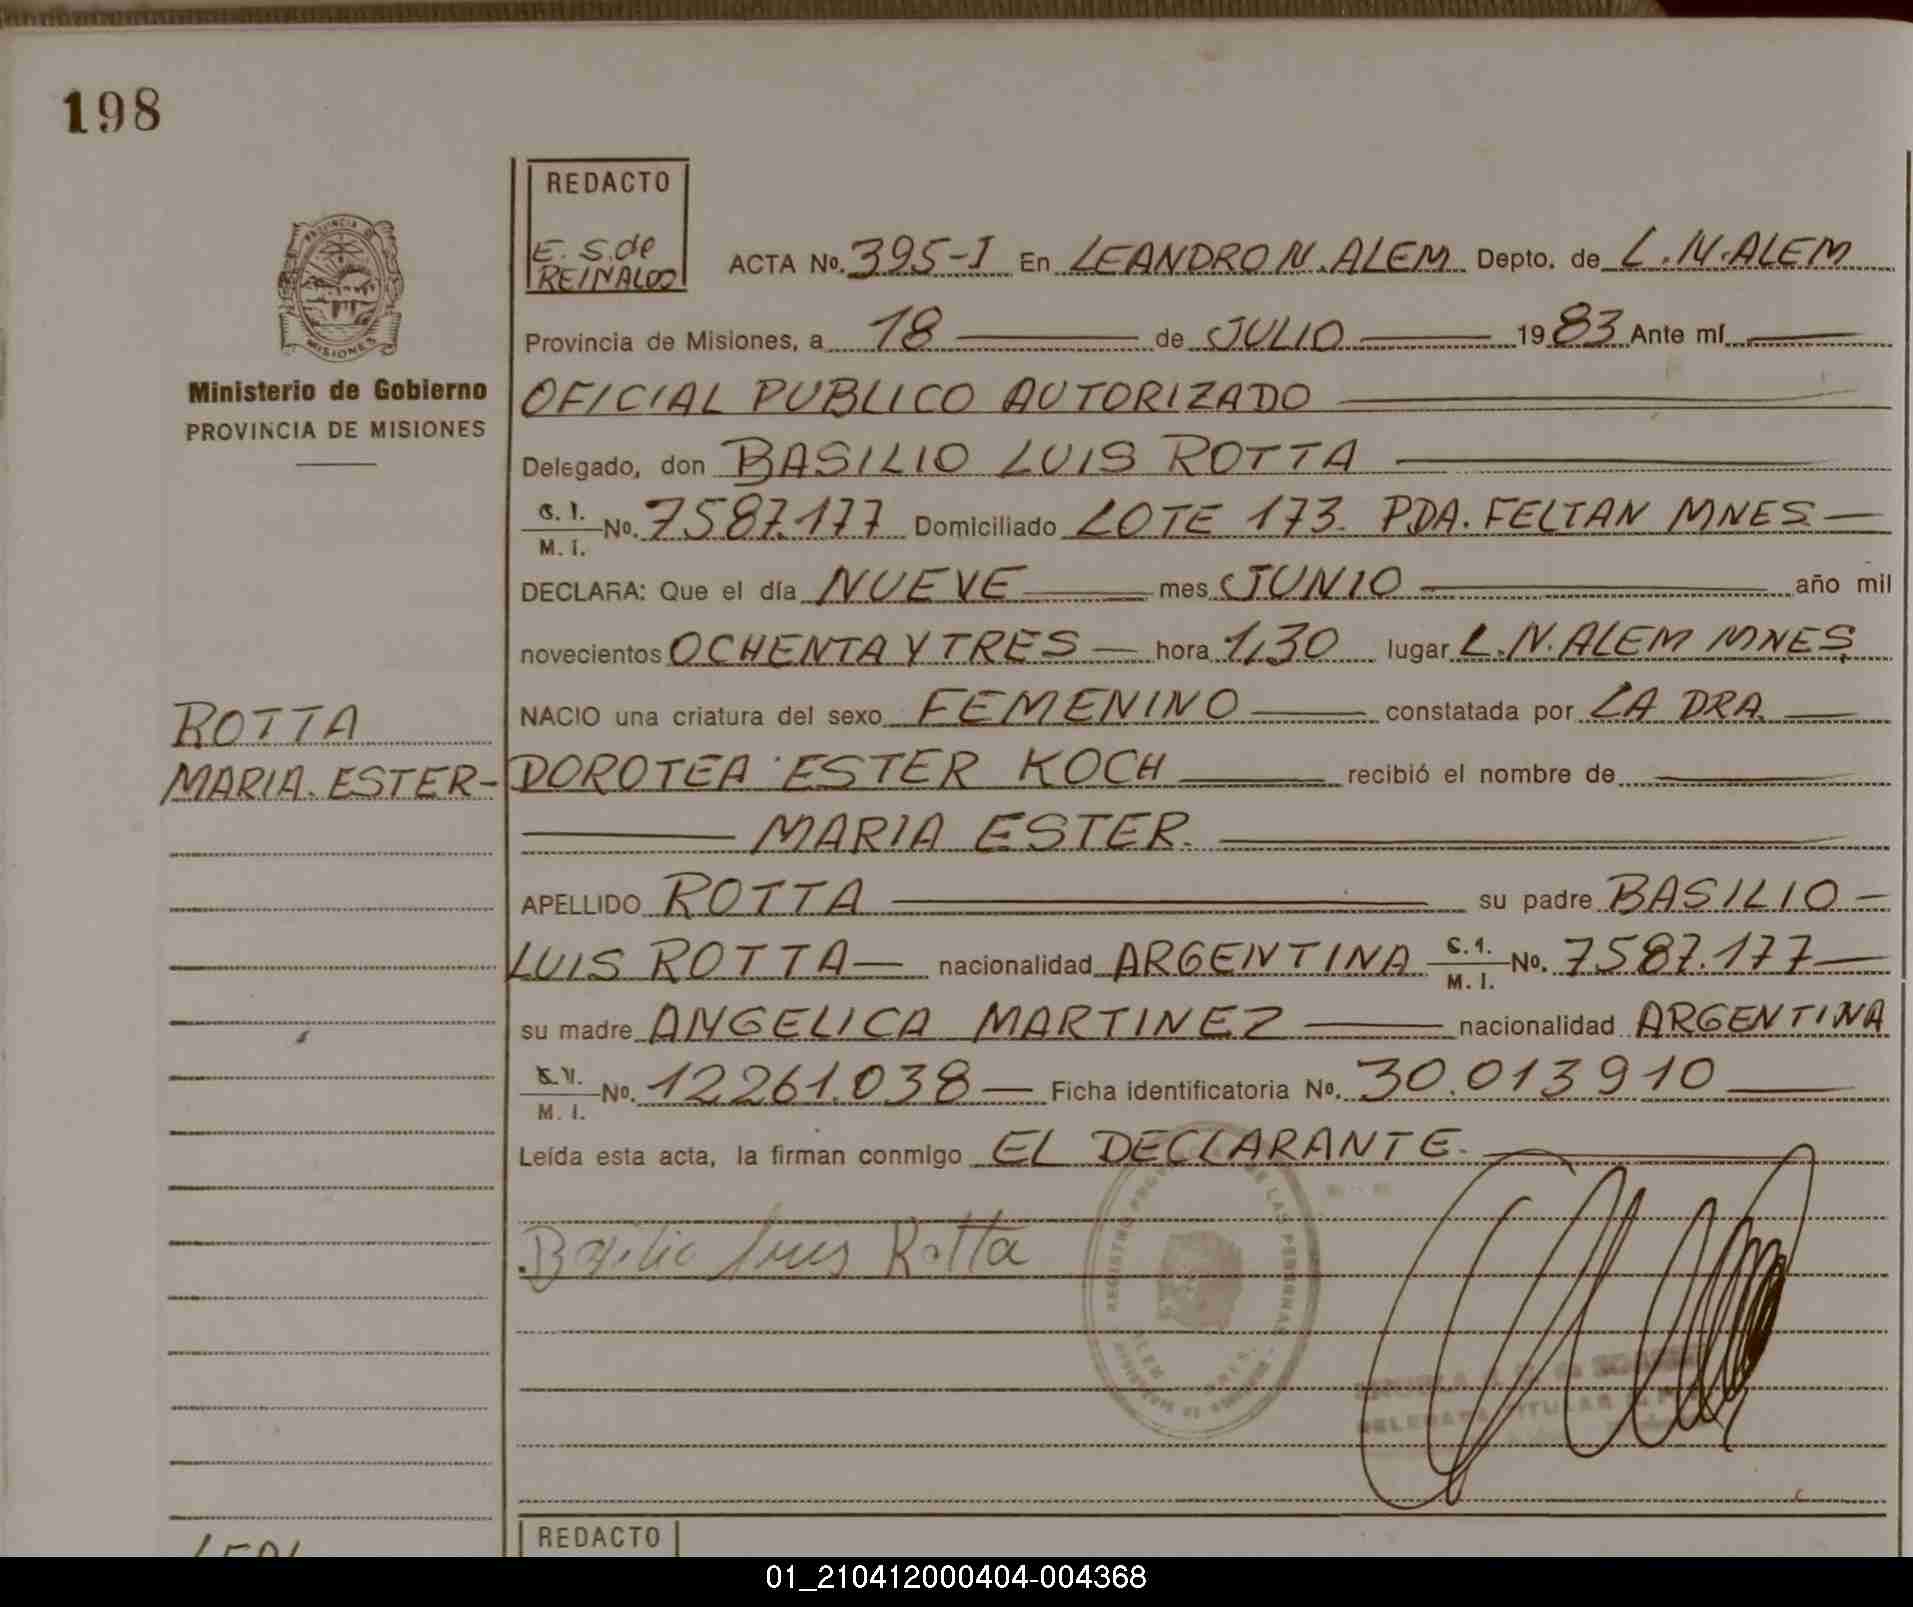 198
REDACTO
E. S. de
REINALDO
PROVINCIA DE
MISIONES
Ministerio de Gobierno
PROVINCIA DE MISIONES
ACTA No. 395-I En LEANDRO N. ALEM Depto. de L. N. ALEM
Provincia de Misiones, a 18 de JULIO 1983 Ante mí
OFICIAL PUBLICO AUTORIZADO
Delegado, don BASILIO LUIS ROTTA
C. I.
M. I. No. 7587.177 Domiciliado LOTE 173. PDA. FELTAN MNES
DECLARA: Que el día NUEVE mes JUNIO año mil
novecientos OCHENTA Y TRES hora 1,30 lugar L. N. ALEM MNES
NACIO una criatura del sexo FEMENINO constatada por LA DRA.
DOROTEA ESTER KOCH recibió el nombre de
MARIA ESTER.
ROTTA
MARIA. ESTER-
APELLIDO ROTTA su padre BASILIO
LUIS ROTTA nacionalidad ARGENTINA C. I. M. I. No. 7587.177
su madre ANGELICA MARTINEZ nacionalidad ARGENTINA
M. I. No. 12261.038 Ficha identificatoria No. 30.013910
Leída esta acta, la firman conmigo EL DECLARANTE.
Basilio Luis Rotta
REGISTRO DE LAS PERSONAS
ALEM
REDACTO
01_210412000404-004368